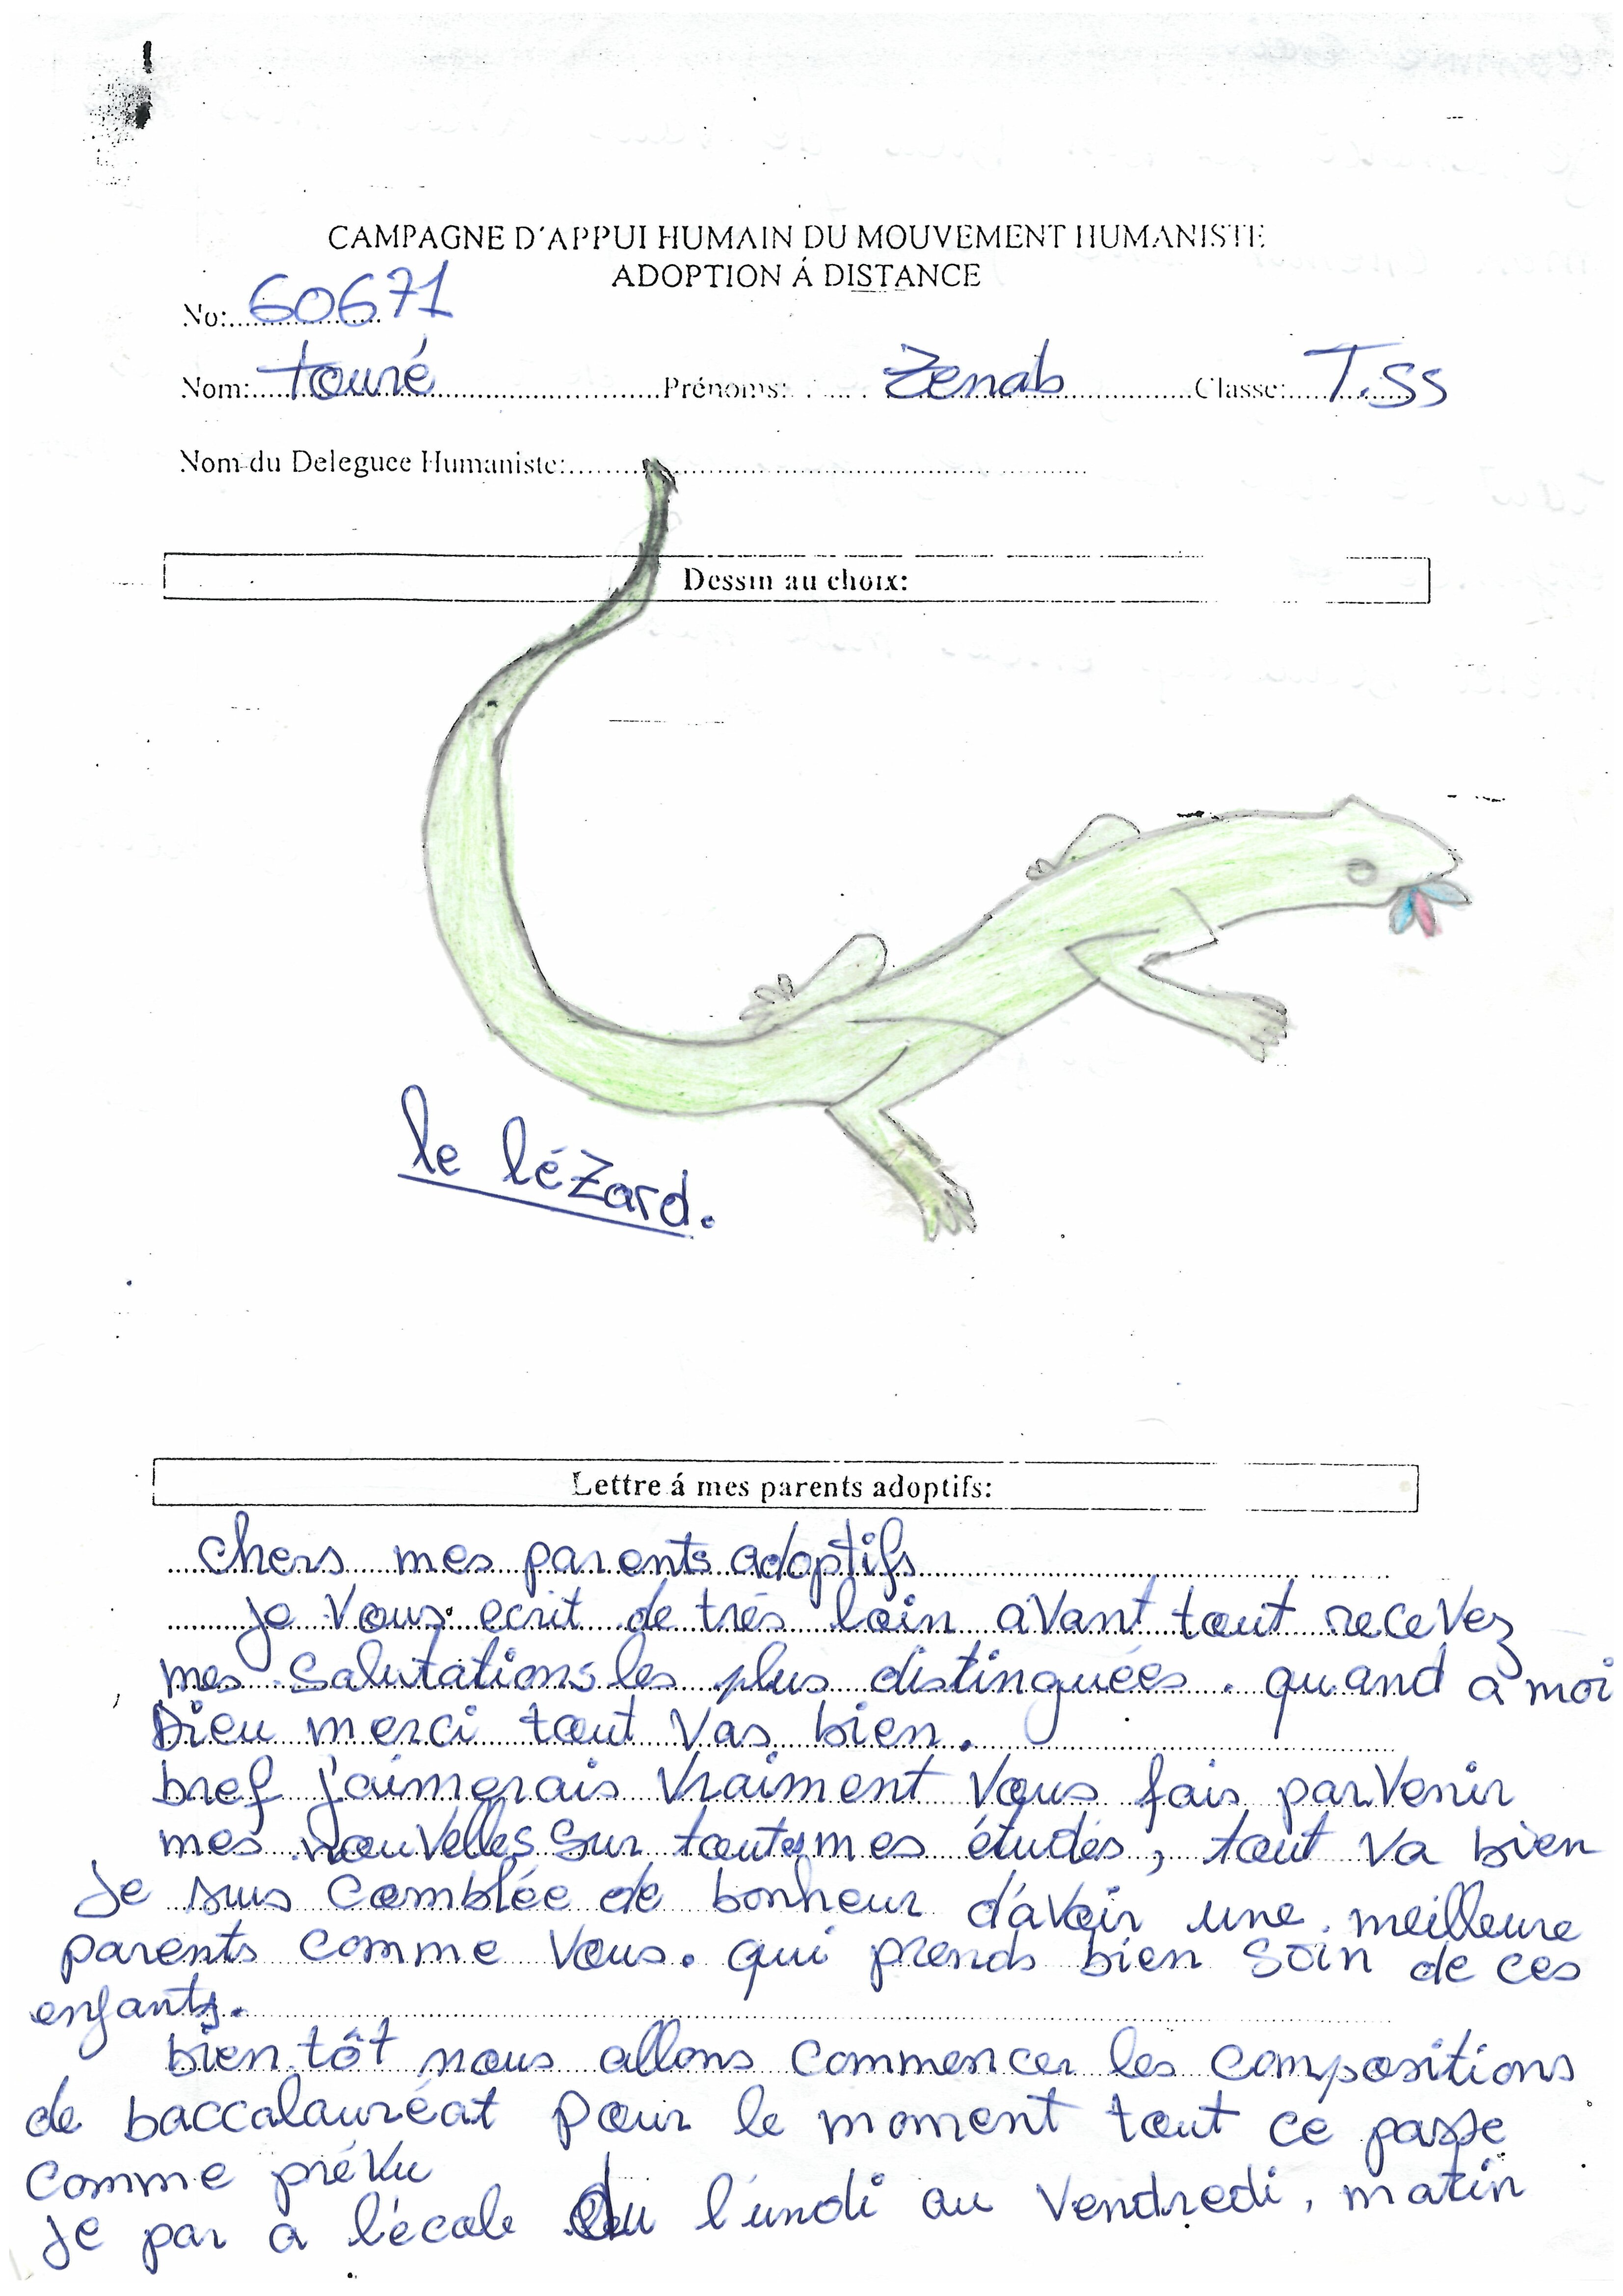 CAMPAGNE D'APPUI HUMAIN DU MOUVEMENT HUMANISTE
ADOPTION Á DISTANCE
No: 60671
Nom: Touré Prénoms: Zenab Classe: T.SS
Nom du Deleguee Humaniste:
Dessin au choix:
le léZard.
Lettre á mes parents adoptifs:
chers mes parents adoptifs
je vous ecrit de très loin avant tout recevez
mes salutations les plus distinguées. quand a moi
Dieu merci tout vas bien.
bref j'aimerais vraiment vous fais parvenir
mes nouvelles sur toutes mes études, tout va bien
Je suis comblée de bonheur d'avoir une meilleure
parents comme vous. qui prends bien soin de ces
enfants.
bientôt nous allons commencer les compositions
de baccalauréat pour le moment tout ce passe
comme prévu
je par a l'école du l'undi au vendredi, matin